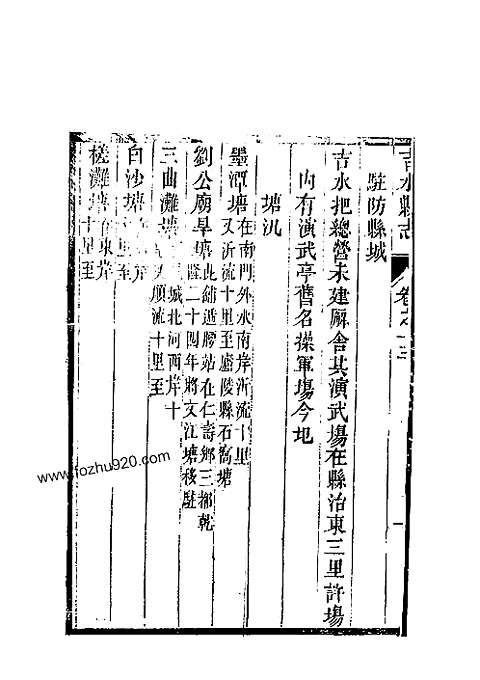 吉水縣志
卷之十三
一
駐防縣城
吉水把總營未建廨舍其演武場在縣治東三里許場
內有演武亭舊名操軍場今圯
塘汛
墨潭塘在南門外水南岸泝流十里
又泝流十里至廬陵縣石
劉公廟旱塘此鋪遞腰站在仁壽鄉三都乾
隆二十四年將文江塘移駐
三曲灘塘城北河西岸十
順流十里至
白沙塘岸
至
槎灘塘在東岸
十里至
www.fozhu920.com